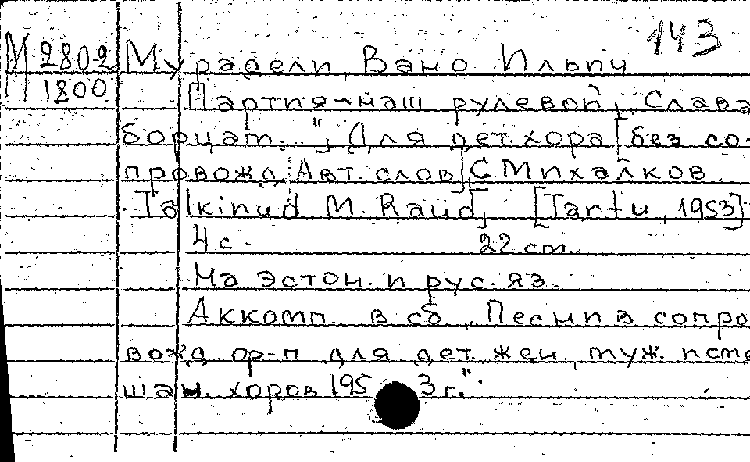 143
М 2802 Мурадели, Вано Ильич
П 1800 Партия-наш рулевой, Слава
борцам..."; Для дет. хора [без со-
провожд. Авт. слов] С Михалков.
Tõlkinud M. Raud, [Tartu, 1953]
4 с. 22 cm.
На эстон. и рус. яз.
Аккомп. в сб. „Песни в сопро
вожд ор-п для дет. жен, муж. и сме
шан. хоров 1953 г."